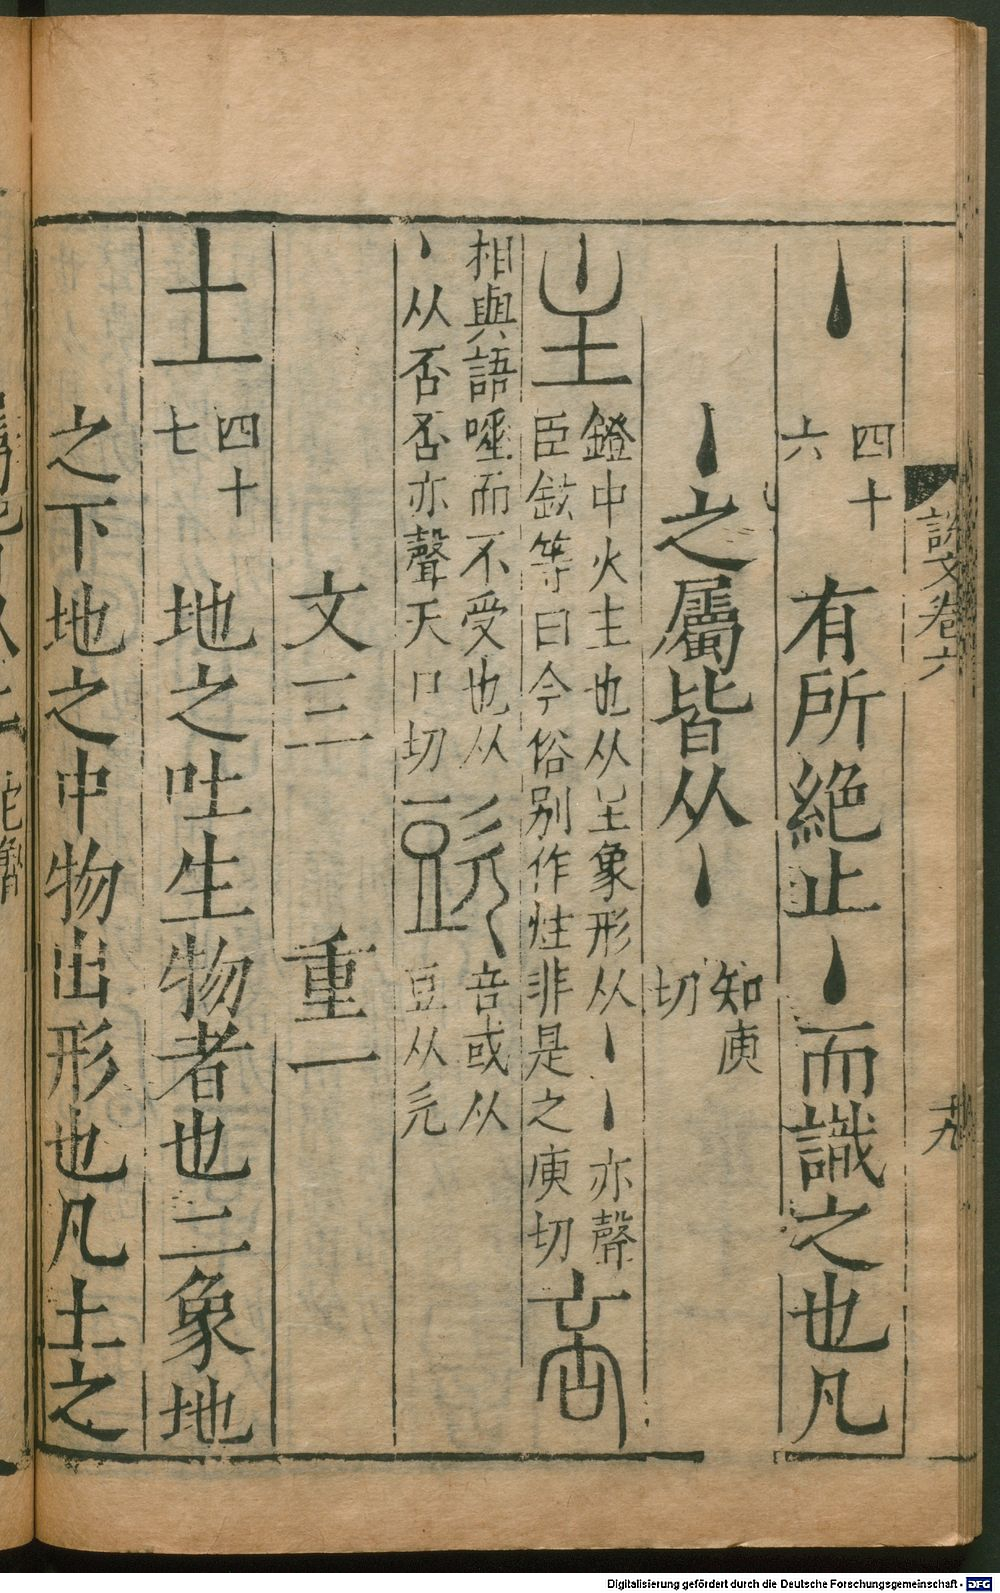 說文卷六
十九
丶 四十六 有所絶止丶而識之也凡
丶之屬皆从丶 知庾切
鐙中火主也从𡈼象形从丶丶亦聲
臣鉉等曰今俗别作炷非是之庾切
相與語唾而不受也从
丶从否否亦聲天口切
咅或从
豆从
文三 重一
土 四十七 地之吐生物者也二象地
之下地之中物出形也凡土之
Digitalisierung gefördert durch die Deutsche Forschungsgemeinschaft - DFG